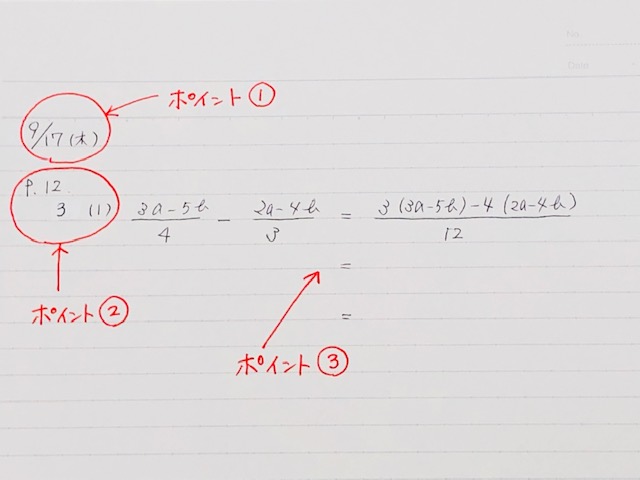 No.
Date
ポイント①
9/17(木)
P.12.
3 (1) (3a-5b)/4 - (2a-4b)/3 = (3(3a-5b)-4(2a-4b))/12
=
=
ポイント②
ポイント③